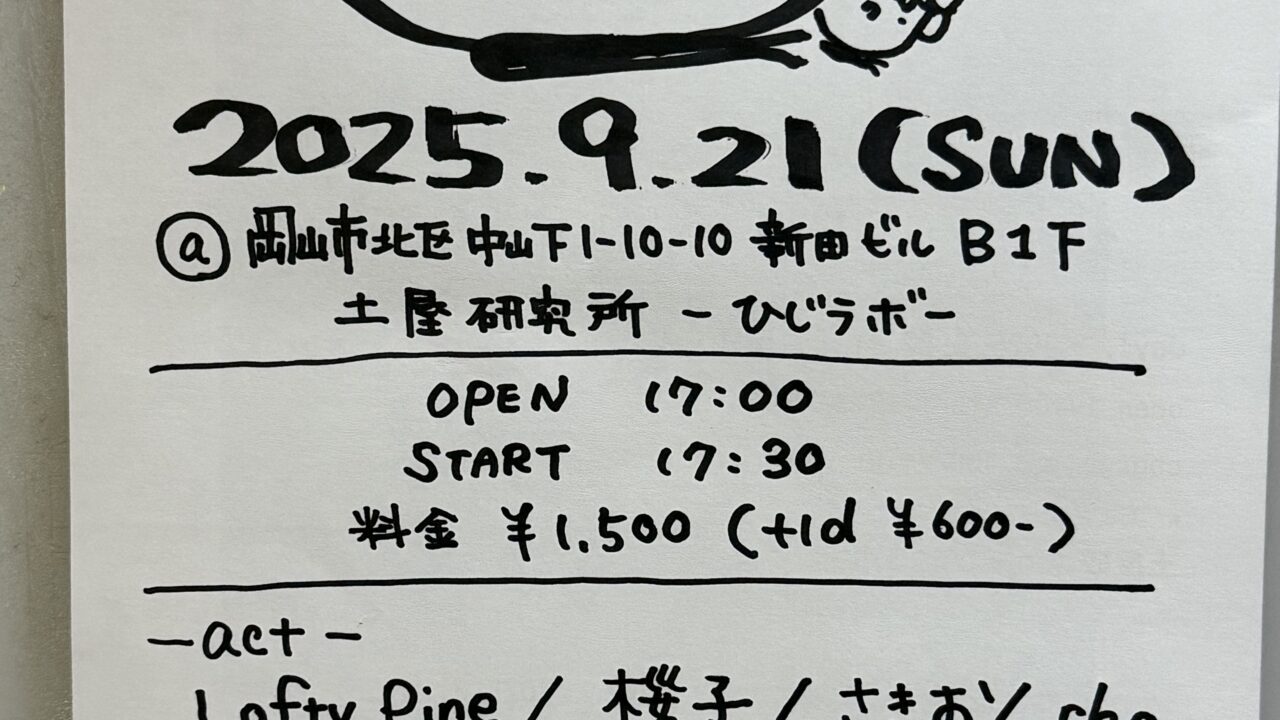 2025.9.21(SUN)
ⓐ 岡山市北区中山下1-10-10 新田ビル B1下
土屋研究所 -ひじラボ-
OPEN 17:00
START 17:30
料金 ¥1.500 (+1d ¥600-)
-act-
Lofty Pine / 桜子 / さきお / cho